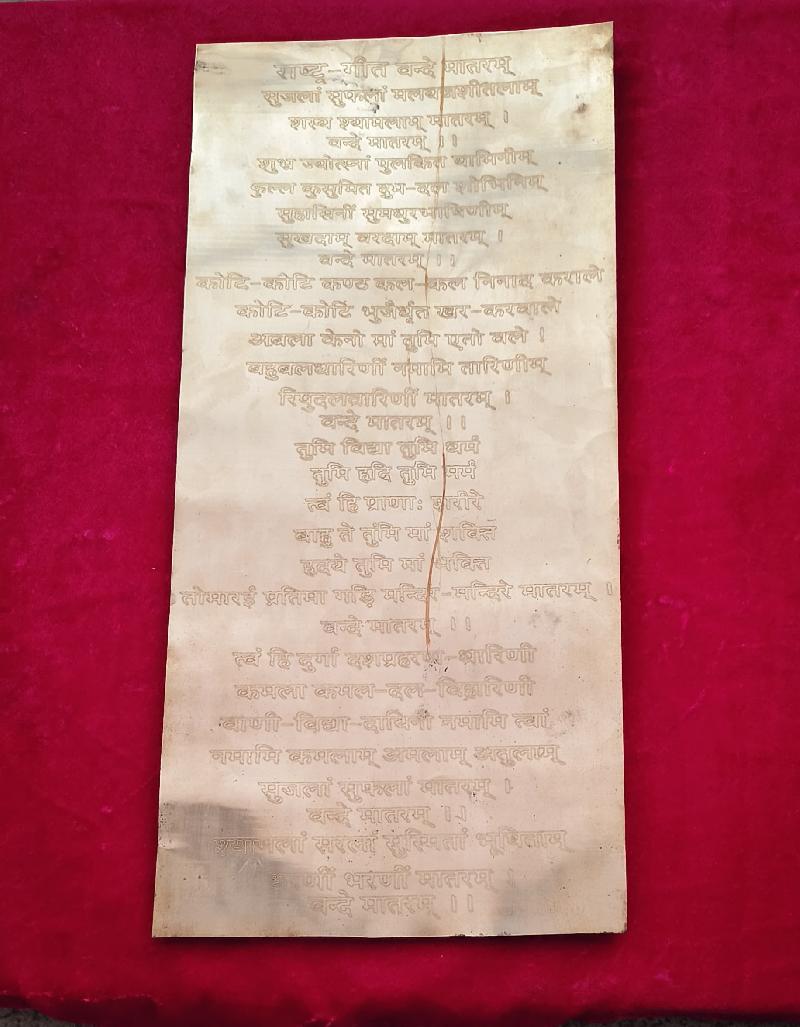 राष्ट्र-गीत वन्दे मातरम्
सुजलां सुफलां मलयजशीतलाम्
शस्य श्यामलाम् मातरम् ।
वन्दे मातरम् ।।
शुभ्र ज्योत्स्नां पुलकित यामिनीम्
फुल्ल कुसुमित द्रुम-दल शोभिनिम्
सुहासिनीं सुमधुरभाषिणीम्
सुखदाम् वरदाम् मातरम् ।
वन्दे मातरम् ।।
कोटि-कोटि कण्ठ कल-कल निनाद कराले
कोटि-कोटि भुजैर्धृत खर-करवाले
अबला केनो मां तुमि एतो बले !
बहुबलधारिणीं नमामि तारिणीम्
रिपुदलवारिणीं मातरम् ।
वन्दे मातरम् ।।
तुमि विद्या तुमि धर्म
तुमि हृदि तुमि मर्म
त्वं हि प्राणाः शरीरे
बाहु ते तुंमि मां शक्ति
हृदये तुमि मां भक्ति
तोमारई प्रतिमा गड़ि मन्दिर-मन्दिरे मातरम् ।
वन्दे मातरम् ।।
त्वं हि दुर्गा दशप्रहरण-धारिणी
कमला कमल-दल-विहारिणी
वाणी-विद्या-दायिनी नमामि त्वां
नमामि कमलाम् अमलाम् अतुलाम्
सुजलां सुफलां मातरम् ।
वन्दे मातरम् ।।
श्यामलां सरलां सुस्मितां भूषिताम्
भरणीं मातरम् ।
वन्दे मातरम् ।।